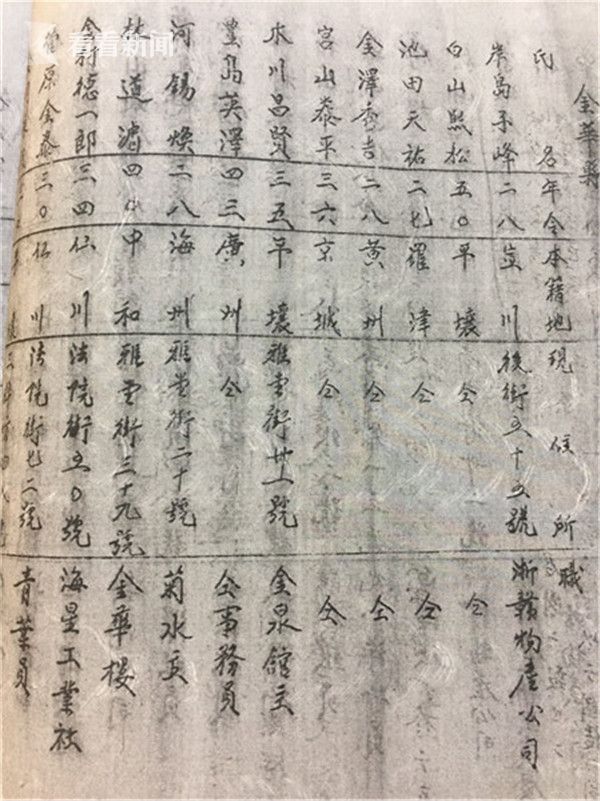 看看新闻
金華
氏名 年令 本籍地 現住所 職
岸島子峰 二八 豈川 後街五十五號 浙贛物產公司
白山熙松 五〇 平壤 仝 仝
池田天祐 二七 羅津 仝 仝
金澤秀吉 二八 黃州 仝 仝
宮山泰平 三六 京城 仝 仝
木川昌賢 三五 平壤 雅堂街廿一號 金泉館主
豊島英澤 四三 廣州 仝 仝事務員
河錫煥 二八 海州 雅堂街二十號 菊水主
林道濬 四 中和 雅堂街三十九號 金華樓
德一郎 三四 仙川 法院街五〇號 海星工業社
原金泰 三〇 仙川 法院街七二號 青葉員